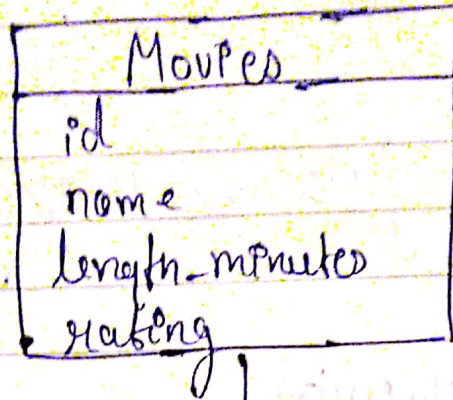 Movies
id
name
length_minutes
rating